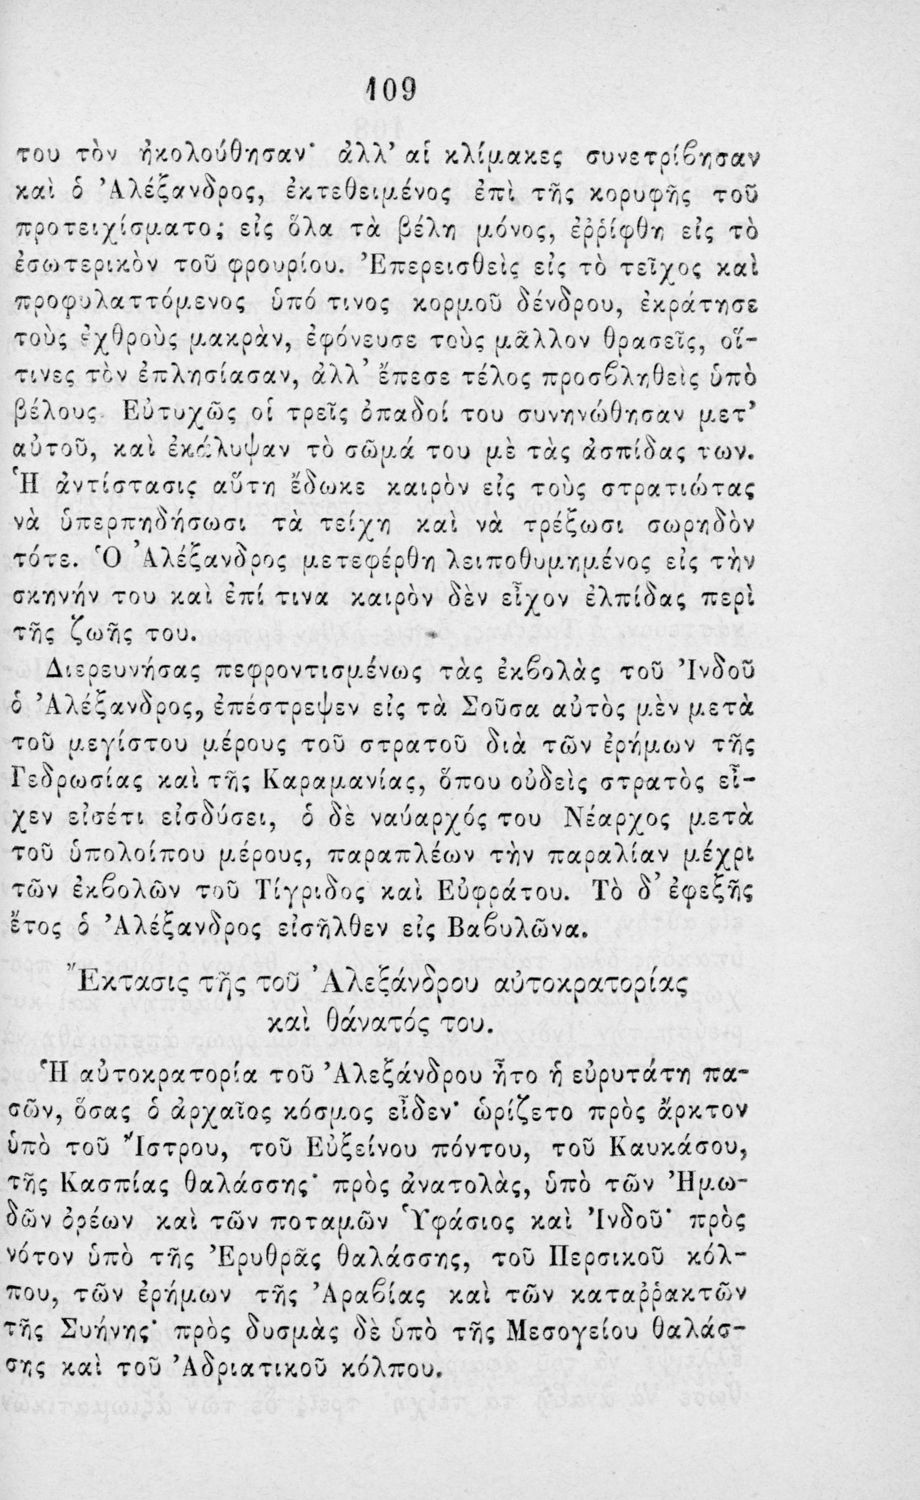 109
του τὸν ἠκολούθησαν· ἀλλ’ αἱ κλίμακες συνετρίβησαν
καὶ ὁ Ἀλέξανδρος, ἐκτεθειμένος ἐπὶ τῆς κορυφῆς τοῦ
προτειχίσματος εἰς ὅλα τὰ βέλη μόνος, ἐῤῥίφθη εἰς τὸ
ἐσωτερικὸν τοῦ φρουρίου. Ἐπερεισθεὶς εἰς τὸ τεῖχος καὶ
προφυλαττόμενος ὑπό τινος κορμοῦ δένδρου, ἐκράτησε
τοὺς ἐχθροὺς μακρὰν, ἐφόνευσε τοὺς μᾶλλον θρασεῖς, οἵ-
τινες τὸν ἐπλησίασαν, ἀλλ’ ἔπεσε τέλος προσβληθεὶς ὑπὸ
βέλους. Εὐτυχῶς οἱ τρεῖς ὀπαδοί του συνηνώθησαν μετ’
αὐτοῦ, καὶ ἐκάλυψαν τὸ σῶμά του μὲ τὰς ἀσπίδας των.
Ἡ ἀντίστασις αὕτη ἔδωκε καιρὸν εἰς τοὺς στρατιώτας
νὰ ὑπερπηδήσωσι τὰ τείχη καὶ νὰ τρέξωσι σωρηδὸν
τότε. Ὁ Ἀλέξανδρος μετεφέρθη λειποθυμημένος εἰς τὴν
σκηνήν του καὶ ἐπί τινα καιρὸν δὲν εἶχον ἐλπίδας περὶ
τῆς ζωῆς του.
Διερευνήσας πεφροντισμένως τὰς ἐκβολὰς τοῦ Ἰνδοῦ
ὁ Ἀλέξανδρος, ἐπέστρεψεν εἰς τὰ Σοῦσα αὐτὸς μὲν μετὰ
τοῦ μεγίστου μέρους τοῦ στρατοῦ διὰ τῶν ἐρήμων τῆς
Γεδρωσίας καὶ τῆς Καραμανίας, ὅπου οὐδεὶς στρατὸς εἶ-
χεν εἰσέτι εἰσδύσει, ὁ δὲ ναύαρχός του Νέαρχος μετὰ
τοῦ ὑπολοίπου μέρους, παραπλέων τὴν παραλίαν μέχρι
τῶν ἐκβολῶν τοῦ Τίγριδος καὶ Εὐφράτου. Τὸ δ’ ἐφεξῆς
ἔτος ὁ Ἀλέξανδρος εἰσῆλθεν εἰς Βαβυλῶνα.
Ἔκτασις τῆς τοῦ Ἀλεξάνδρου αὐτοκρατορίας
καὶ θάνατός του.
Ἡ αὐτοκρατορία τοῦ Ἀλεξάνδρου ἦτο ἡ εὐρυτάτη πα-
σῶν, ὅσας ὁ ἀρχαῖος κόσμος εἶδεν· ὡρίζετο πρὸς ἄρκτον
ὑπὸ τοῦ Ἴστρου, τοῦ Εὐξείνου πόντου, τοῦ Καυκάσου,
τῆς Κασπίας θαλάσσης· πρὸς ἀνατολὰς, ὑπὸ τῶν Ἠμω-
δῶν ὀρέων καὶ τῶν ποταμῶν Ὑφάσιος καὶ Ἰνδοῦ· πρὸς
νότον ὑπὸ τῆς Ἐρυθρᾶς θαλάσσης, τοῦ Περσικοῦ κόλ-
που, τῶν ἐρήμων τῆς Ἀραβίας καὶ τῶν καταῤῥακτῶν
τῆς Συήνης· πρὸς δυσμὰς δὲ ὑπὸ τῆς Μεσογείου θαλάσ-
σης καὶ τοῦ Ἀδριατικοῦ κόλπου.